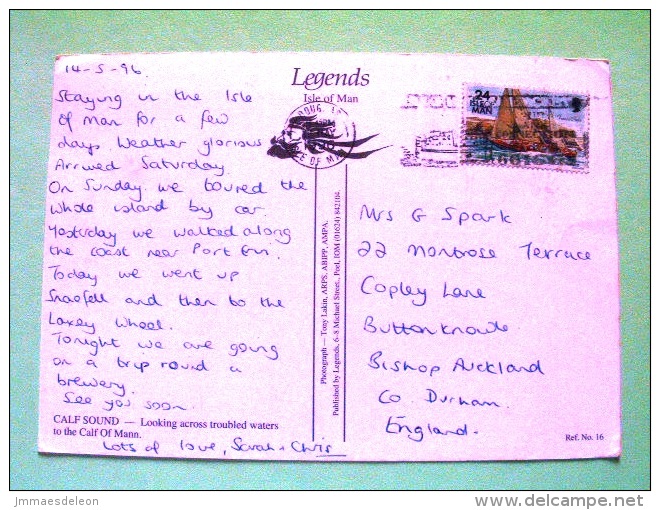 14-5-96.
Staying in the Isle
of Man for a few
days. Weather glorious
Arrived Saturday.
On Sunday we toured the
whole island by car.
Yesterday we walked along
the coast near Port Erin.
Today we went up
Snaefell and then to the
Laxey Wheel.
Tonight we are going
on a trip round a
brewery.
See you soon.
Lots of love, Sarah + Chris
CALF SOUND — Looking across troubled waters
to the Calf Of Mann.
Legends
Isle of Man
24
ISLE OF
MAN
OF MAN
Photograph — Tony Lakin, ARPS, ABIPP, AMPA.
Published by Legends, 6-8 Michael Street, Peel, IOM (01624) 842104.
Mrs G Spark
22 Montrose Terrace
Copley Lane
Butterknowle
Bishop Auckland
Co. Durham.
England.
Ref. No. 16
jmmaesdeleon
www.delcampe.net